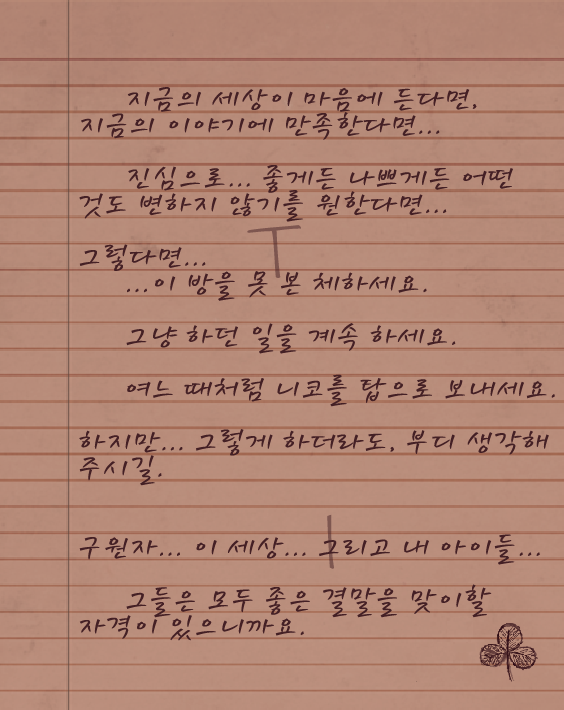 지금의 세상이 마음에 든다면,
지금의 이야기에 만족한다면...
진심으로... 좋게든 나쁘게든 어떤
것도 변하지 않기를 원한다면...
그렇다면...
...이 방을 못 본 체하세요.
그냥 하던 일을 계속 하세요.
여느 때처럼 니코를 탑으로 보내세요.
하지만... 그렇게 하더라도, 부디 생각해
주시길.
구원자... 이 세상... 그리고 내 아이들...
그들은 모두 좋은 결말을 맞이할
자격이 있으니까요.